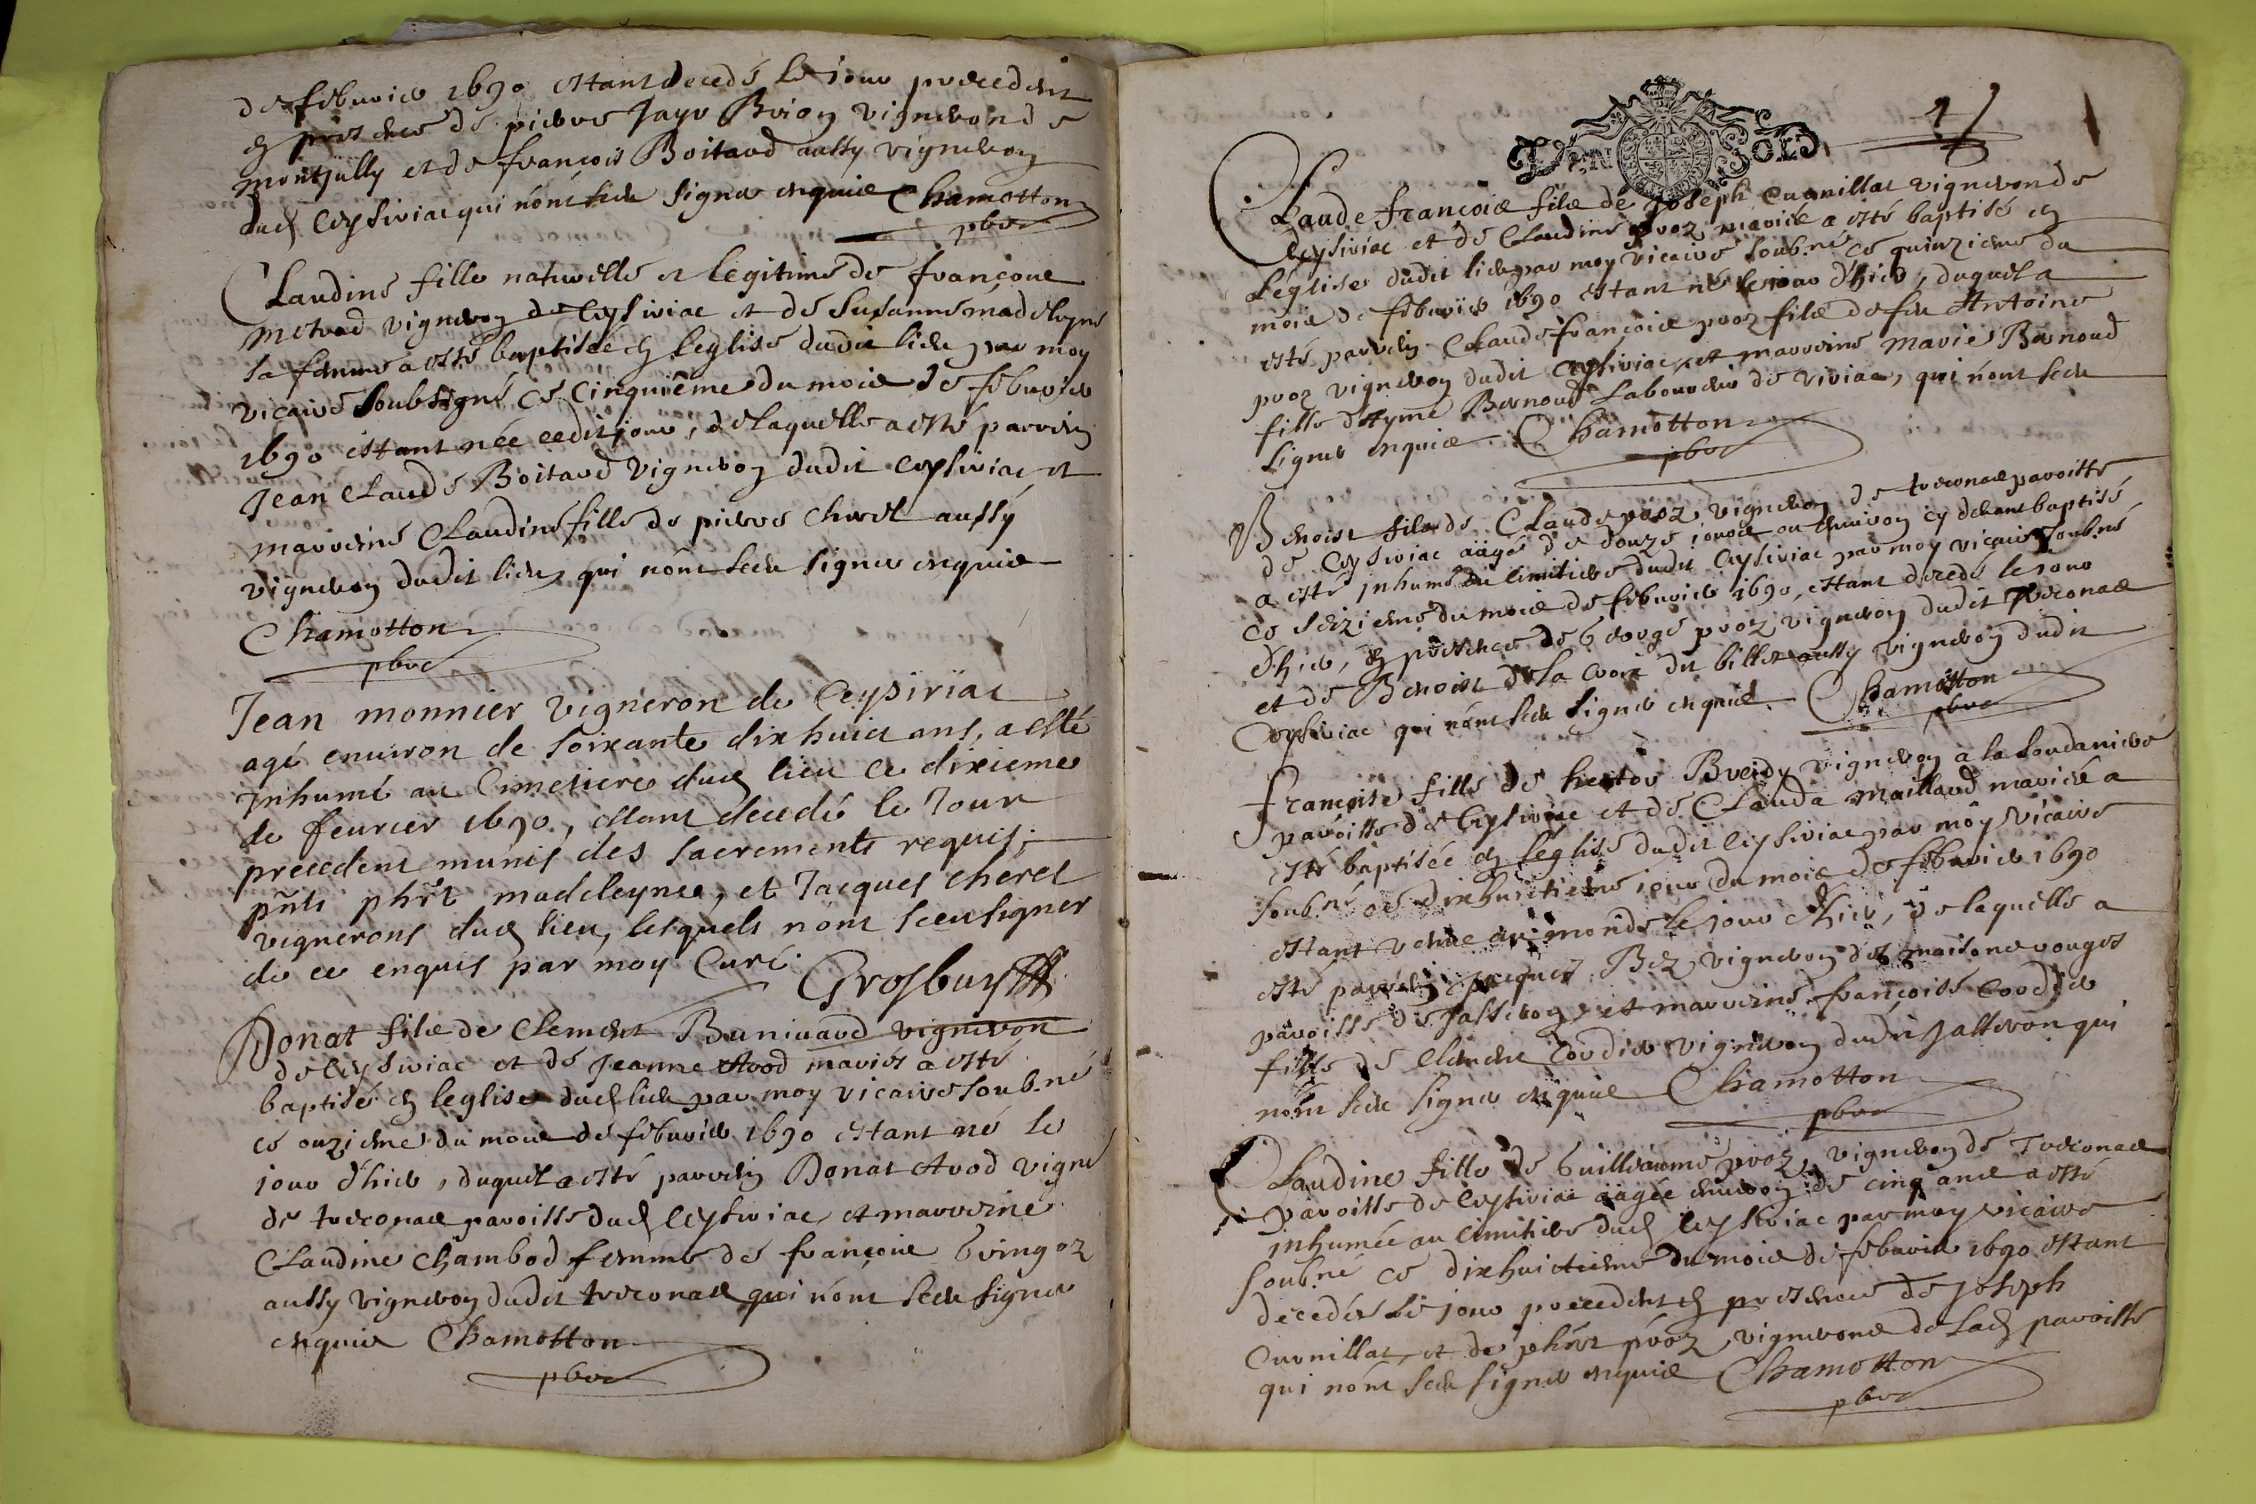 de febvrier 1690 estant decedé le jour precedent
en presence de pierre Jayr Brion vigneron de
montjully et de françois Boitard aussy vigneron
dud Ceysiriac qui n'ont sceu signer enquis Chamotton
pbre
Claudine fille naturelle et legitime de françois
vigneron de Ceysiriac et de Susanne madeleyne
sa femme a esté baptisée en l'eglise dudit lieu par moy
vicaire soubsigné ce cinquième du mois de febvrier
1690 estant née cedit jour, de laquelle a esté parrein
Jean Claude Boitard vigneron dudit Ceysiriac et
marreine Claudine fille de pierre Cheret aussy
vigneron dudit lieu, qui n'ont sceu signer enquis
Chamotton
pbre
Jean monnier vigneron de Ceysiriac
agé environ de soixante dix huict ans, a esté
Inhumé au Cimetiere dud lieu ce dixieme
de feurier 1690, estant decedé le Jour
precedent munis des sacrements requis,
pnts phrt madeleyne, et Jacques cheret
vignerons dud lieu, lesquels n'ont sceu signer
de ce enquis par moy Curé. Grosbuis
Donat fils de Clement Buniuard vigneron
de Ceysiriac et de Jeanne Avod mariés a esté
baptisé en l'eglise dud lieu par moy vicaire soubné
ce onzieme du mois de febvrier 1690 estant né le
jour d'hier, duquel a esté parrein Donat Avod vign
de treconas paroisse dud Ceysiriac, et marreine
Claudine Chambod femme de françois Gringoz
aussy vigneron dudit treconas qui n'ont sceu signer
enquis Chamotton
pbre
DEN SOLD
Claude françois fils de Joseph Curnillat vigneron de
Ceysiriac et de Claudine proz mariés a esté baptisé en
l'eglise dudit lieu par moy vicaire soubné ce quinzieme du
mois de febvrier 1690 estant né le jour d'hier, duquel a
esté parrein Claude françois proz fils de feu Antoine
proz vigneron dudit Ceysiriac, et marreine Marie Bernoud
fille d'Aymé Bernoud Laboureur de viriac, qui n'ont sceu
signer enquis. Chamotton
pbre
Benoist fils de Claude proz vigneron de treconas paroisse
de Ceysiriac aagé de douze jours ou environ cy devant baptisé
a esté inhumé au cimitiere dudit Ceysiriac par moy vicaire soubné
ce seizieme du mois de febvrier 1690, estant decedé le jour
d'hier, en presence de George proz vigneron dudit Treconas
et de Benoist de la croix dit billet aussy vigneron dudit
Ceysiriac qui n'ont sceu signer enquis. Chamotton
pbre
françoise fille de hector Breidy vigneron a la soudaniere
paroisse de Ceysiriac et de Clauda Maillard mariés a
esté baptisée en l'eglise dudit Ceysiriac par moy vicaire
soubné ce dixhuictieme jour du mois de febvrier 1690
estant venue au monde le jour d'hier, de laquelle a
esté parrein Jacques Bez vigneron des maisons rouges
paroisse de Jasseron, et marreine françoise Cordier
fille de Clement Cordier vigneron dudit Jasseron qui
n'ont sceu signer enquis Chamotton
pbre
Claudine fille de Guilleaume proz, vigneron de Treconas
paroisse de Ceysiriac aagée environ de cinq ans a esté
inhumée au cimitiere dud Ceysiriac par moy vicaire
soubné ce dixhuictieme du mois de febvrier 1690 estant
decedée le jour precedent en presence de Joseph
Curnillat, et de phirt proz, vignerons de lad paroisse
qui n'ont sceu signer enquis Chamotton
pbre